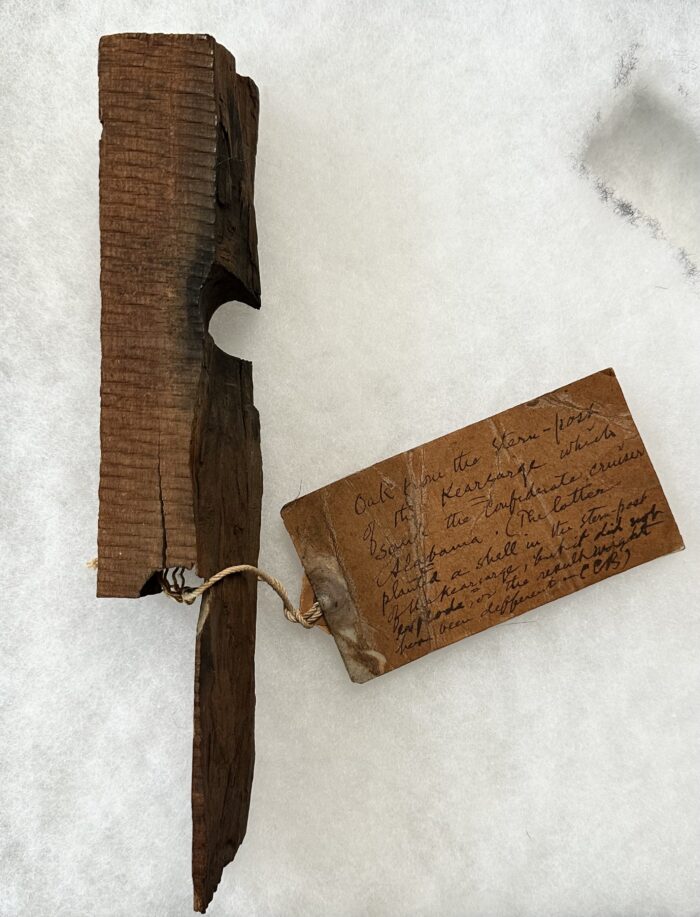 Oak from the stern-post
of the Kearsarge which
sank the Confederate cruiser
Alabama. (The latter
planted a shell in the stern-post
of the Kearsarge, but it did not
explode, or the result might
have been different — (CCB)